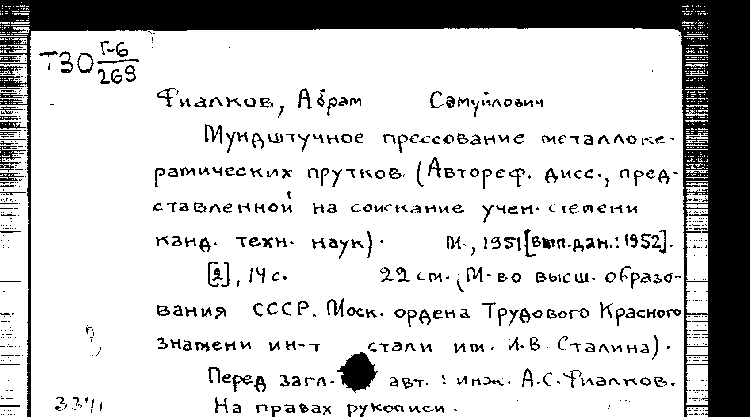 Т30 Г-6/269
Фиалков, Абрам Самуйлович
Мундштучное прессование металлоке-
рамических прутков (Автореф. дисс., пред-
ставленной на соискание учен. степени
канд. техн. наук). М., 1951 [вып.дан.: 1952].
[2], 14 с. 22 см. (М-во высш. образо-
вания СССР. Моск. ордена Трудового Красного
знамени ин-т стали им. И.В. Сталина).
Перед загл. авт.: инж. А.С. Фиалков.
На правах рукописи.